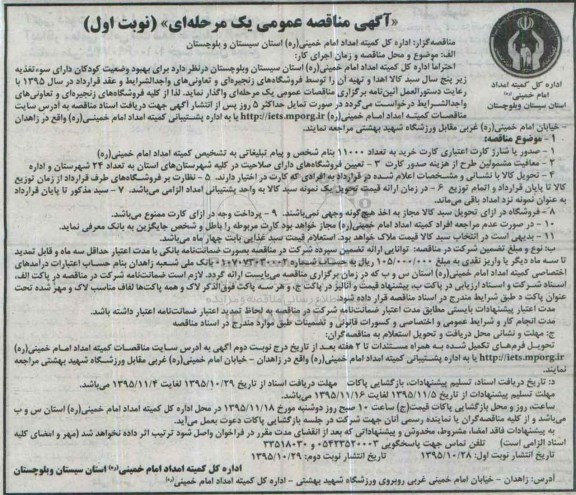 «آگهی مناقصه عمومی یک مرحله‌ای» (نوبت اول)
اداره کل کمیته امداد
امام خمینی(ره)
استان سیستان وبلوچستان
مناقصه‌گزار: اداره کل کمیته امداد امام خمینی(ره) استان سیستان و بلوچستان
الف: موضوع و محل مناقصه و زمان اجرای کار:
احتراما اداره کل کمیته امداد امام خمینی(ره) استان سیستان وبلوچستان درنظر دارد برای بهبود وضعیت کودکان دارای سوءتغذیه
زیر پنج سال سبد کالا اهدا و تهیه آن را توسط فروشگاههای زنجیره‌ای و تعاونی‌های واجدالشرایط و عقد قرارداد در سال ۱۳۹۵ با
رعایت دستورالعمل آئین‌نامه برگزاری مناقصات عمومی یک مرحله‌ای واگذار نماید. لذا از کلیه فروشگاه‌های زنجیره‌ای و تعاونی‌های
واجدالشرایط درخواست می‌گردد در صورت تمایل حداکثر ۵ روز پس از انتشار آگهی جهت دریافت اسناد مناقصه به آدرس سایت
مناقصات کمیته امداد امام خمینی(ره) http://iets.mporg.ir یا به اداره پشتیبانی کمیته امداد امام خمینی(ره) واقع در زاهدان
– خیابان امام خمینی(ره) غربی مقابل ورزشگاه شهید بهشتی مراجعه نمایند.
۱ – موضوع مناقصه:
۱ – صدور یا شارژ کارت اعتباری کارت خرید به تعداد ۱۱۰۰۰ بنام شخص و پیام تبلیغاتی به تشخیص کمیته امداد
۲ – معافیت مشمولین طرح از هزینه صدور کارت ۳ – تعیین فروشگاه‌های دارای صلاحیت در کلیه شهرستان‌های استان به تعداد ۲۴ شهرستان و اداره
۴ – تحویل کالا با نشانی و مشخصات اعلام شده در قرارداد به افرادی که کارت در اختیار دارند. ۵ – نظارت بر فروشگاه‌های طرف قرارداد از زمان توزیع
کالا تا پایان قرارداد و اتمام توزیع ۶ – در زمان ارائه قیمت تحویل یک نمونه سبد کالا به واحد پشتیبانی امداد الزامی می‌باشد. ۷ – سبد مذکور تا پایان قرارداد
به عنوان نمونه نزد امداد باقی می‌ماند.
۸ – فروشگاه در ازای تحویل سبد کالا مجاز به اخذ هیچگونه وجهی نمی‌باشند. ۹ – پرداخت وجه در ازای کارت ممنوع می‌باشد.
۱۰ – در صورت عدم مراجعه افراد کمیته امداد امام خمینی(ره) مجاز خواهد بود کارت مربوطه را باطل و شخص جایگزین به بانک معرفی نماید.
۱۱ – بدیهی است در انتخاب سبد کالا قیمت ملاک خواهد بود. استعلام قیمت سبد غذایی بابت چهار ماه می‌باشد.
ب: نوع و مبلغ تضمین شرکت در مناقصه: توانایی ارائه تضمین سپرده شرکت در مناقصه بصورت ضمانت‌نامه بانکی با مدت اعتبار حداقل سه ماه و قابل تمدید
تا سه ماه دیگر یا واریز نقدی به مبلغ ۱۰۵/۰۰۰/۰۰۰ ریال به حساب شماره ۰۱۰۷۰۷۳۰۳۰۰۰۲ بانک ملی شعبه زاهدان بنام حساب اعتبارات درآمدهای
اختصاصی کمیته امداد امام خمینی(ره) استان س و ب که در زمان برگزاری مناقصه می‌بایست ارائه گردد. لازم است ضمانت‌نامه شرکت در مناقصه در پاکت الف،
اسناد شرکت و اسناد ارزیابی در پاکت ب، پیشنهاد قیمت و آنالیز در پاکت ج، و هر سه پاکت فوق‌الذکر لاک و همه پاکت‌ها لفاف مناسب لاک و مهر شده تحت
عنوان پاکت د طبق شرایط مندرج در اسناد مناقصه قرار داده شود.
مدت اعتبار پیشنهادات بایستی مطابق مدت اعتبار ضمانت‌نامه شرکت در مناقصه به لحاظ تمدید اعتبار ضمانت‌نامه اعتبار داشته باشد.
مدت انجام کار و شرایط عمومی و اختصاصی و کسورات قانونی و تضمینات طبق موارد مندرج در اسناد مناقصه
ج: مهلت و نشانی محل دریافت و تحویل استعلام به مناقصه‌گران:
تحویل فرم‌های تکمیل شده به همراه مستندات تا ۲ هفته بعد از تاریخ درج نوبت دوم آگهی به آدرس سایت مناقصات کمیته امداد امام خمینی(ره)
http://iets.mporg.ir یا به اداره پشتیبانی کمیته امداد امام خمینی(ره) واقع در زاهدان – خیابان امام خمینی(ره) غربی مقابل ورزشگاه شهید بهشتی مراجعه
نمایند.
د: تاریخ دریافت اسناد، تسلیم پیشنهادات، بازگشایی پاکات مهلت دریافت اسناد از تاریخ ۱۳۹۵/۱۰/۲۹ لغایت ۱۳۹۵/۱۱/۴ می‌باشد.
مهلت تسلیم پیشنهادات از تاریخ ۱۳۹۵/۱۱/۵ لغایت ۱۳۹۵/۱۱/۱۶ می‌باشد.
ساعت، روز و محل بازگشایی پاکات قیمت(ج) ساعت ۱۰ صبح روز دوشنبه مورخ ۱۳۹۵/۱۱/۱۸ در محل اداره کل کمیته امداد امام خمینی(ره) استان س و ب
می‌باشد و از کلیه مناقصه‌گران یا نماینده رسمی آنان جهت شرکت در جلسه بازگشایی پاکات دعوت بعمل می‌آید.
به پیشنهادات فاقد امضا، مشروط، مخدوش و پیشنهاداتی که بعد از انقضای مدت مقرر در فراخوان واصل شود ترتیب اثر داده نخواهد شد (مهر و امضای کلیه
اسناد الزامی است) تلفن تماس جهت پاسخگویی ۰۵۴۳۳۵۲۰۰۰۳ و ۳۳۵۱۸۰۳۰
تاریخ انتشار نوبت اول: ۱۳۹۵/۱۰/۲۸ تاریخ انتشار نوبت دوم: ۱۳۹۵/۱۰/۲۹
اداره کل کمیته امداد امام خمینی(ره) استان سیستان وبلوچستان
آدرس: زاهدان – خیابان امام خمینی غربی روبروی ورزشگاه شهید بهشتی – اداره کل کمیته امداد امام خمینی(ره)